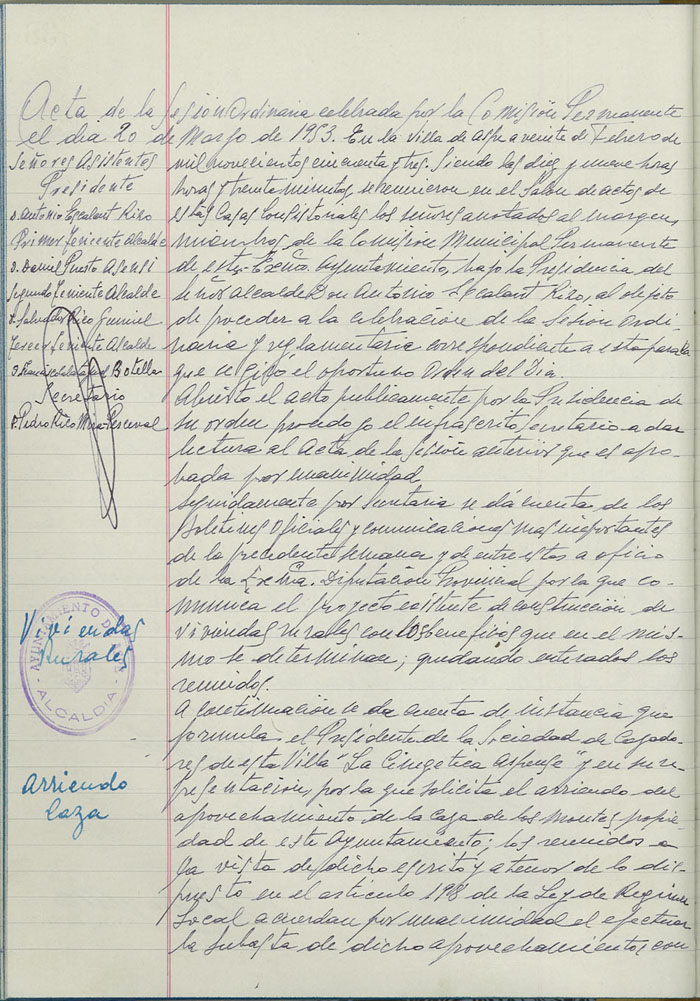 Acta de la Sesión Ordinaria celebrada por la Comisión Permanente
el día 20 de Marzo de 1953. En la villa de Aspe a veinte de Febrero de
mil novecientos cincuenta y tres. Siendo las diez y nueve horas
horas y treinta minutos, se reunieron en el Salon de actos de
estas Casas Consistoriales los señores anotados al margen,
miembros de la Comisión Municipal Permanente
de este Excmo. Ayuntamiento, bajo la Presidencia del
señor Alcalde Don Antonio Escalant Rizo, al objeto
de proceder a la celebración de la Sesión ordi-
naria y reglamentaria correspondiente a esta para la
que se giró el oportuno Orden del Dia.
Abierto el acto publicamente por la Presidencia de
su orden procedo yo el infrascrito Secretario a dar
lectura al Acta de la Sesión anterior que es apro-
bada por unanimidad
Seguidamente por Secretaria se dá cuenta de los
Boletines Oficiales y comunicaciones mas importantes
de la precedente semana y de entre estos a oficio
de la Excma. Diputación Provincial por la que co-
munica el proyecto existente de construcción de
viviendas rurales con los beneficios que en el mis-
mo se determinan; quedando enterados los
reunidos.
A continuación se da cuenta de instancia que
formula el Presidente de la Sociedad de Cazado-
res de esta Villa "La Cinegetica Aspense" y en su re-
presentación, por la que solicita el arriendo del
aprovechamiento de la Caza de los montes propie-
dad de este Ayuntamiento; los reunidos a
la vista de dicho escrito y a tenor de lo dis-
puesto en el articulo 198 de la Ley de Regimen
Local acuerdan por unanimidad el efectuar
la subasta de dicho aprovechamientos con
Señores Asistentes
Presidente
D. Antonio Escalant Rizo
Primer Teniente Alcalde
D. Daniel Puerto Asensi
Segundo Teniente Alcalde
D. Salvador Rico
Tercer Teniente Alcalde
D. Botella
Secretario
D. Pedro Rico Mira-Perceval
Viviendas
Rurales
AYUNTAMIENTO DE
ALCALDIA
Arriendo
Caza